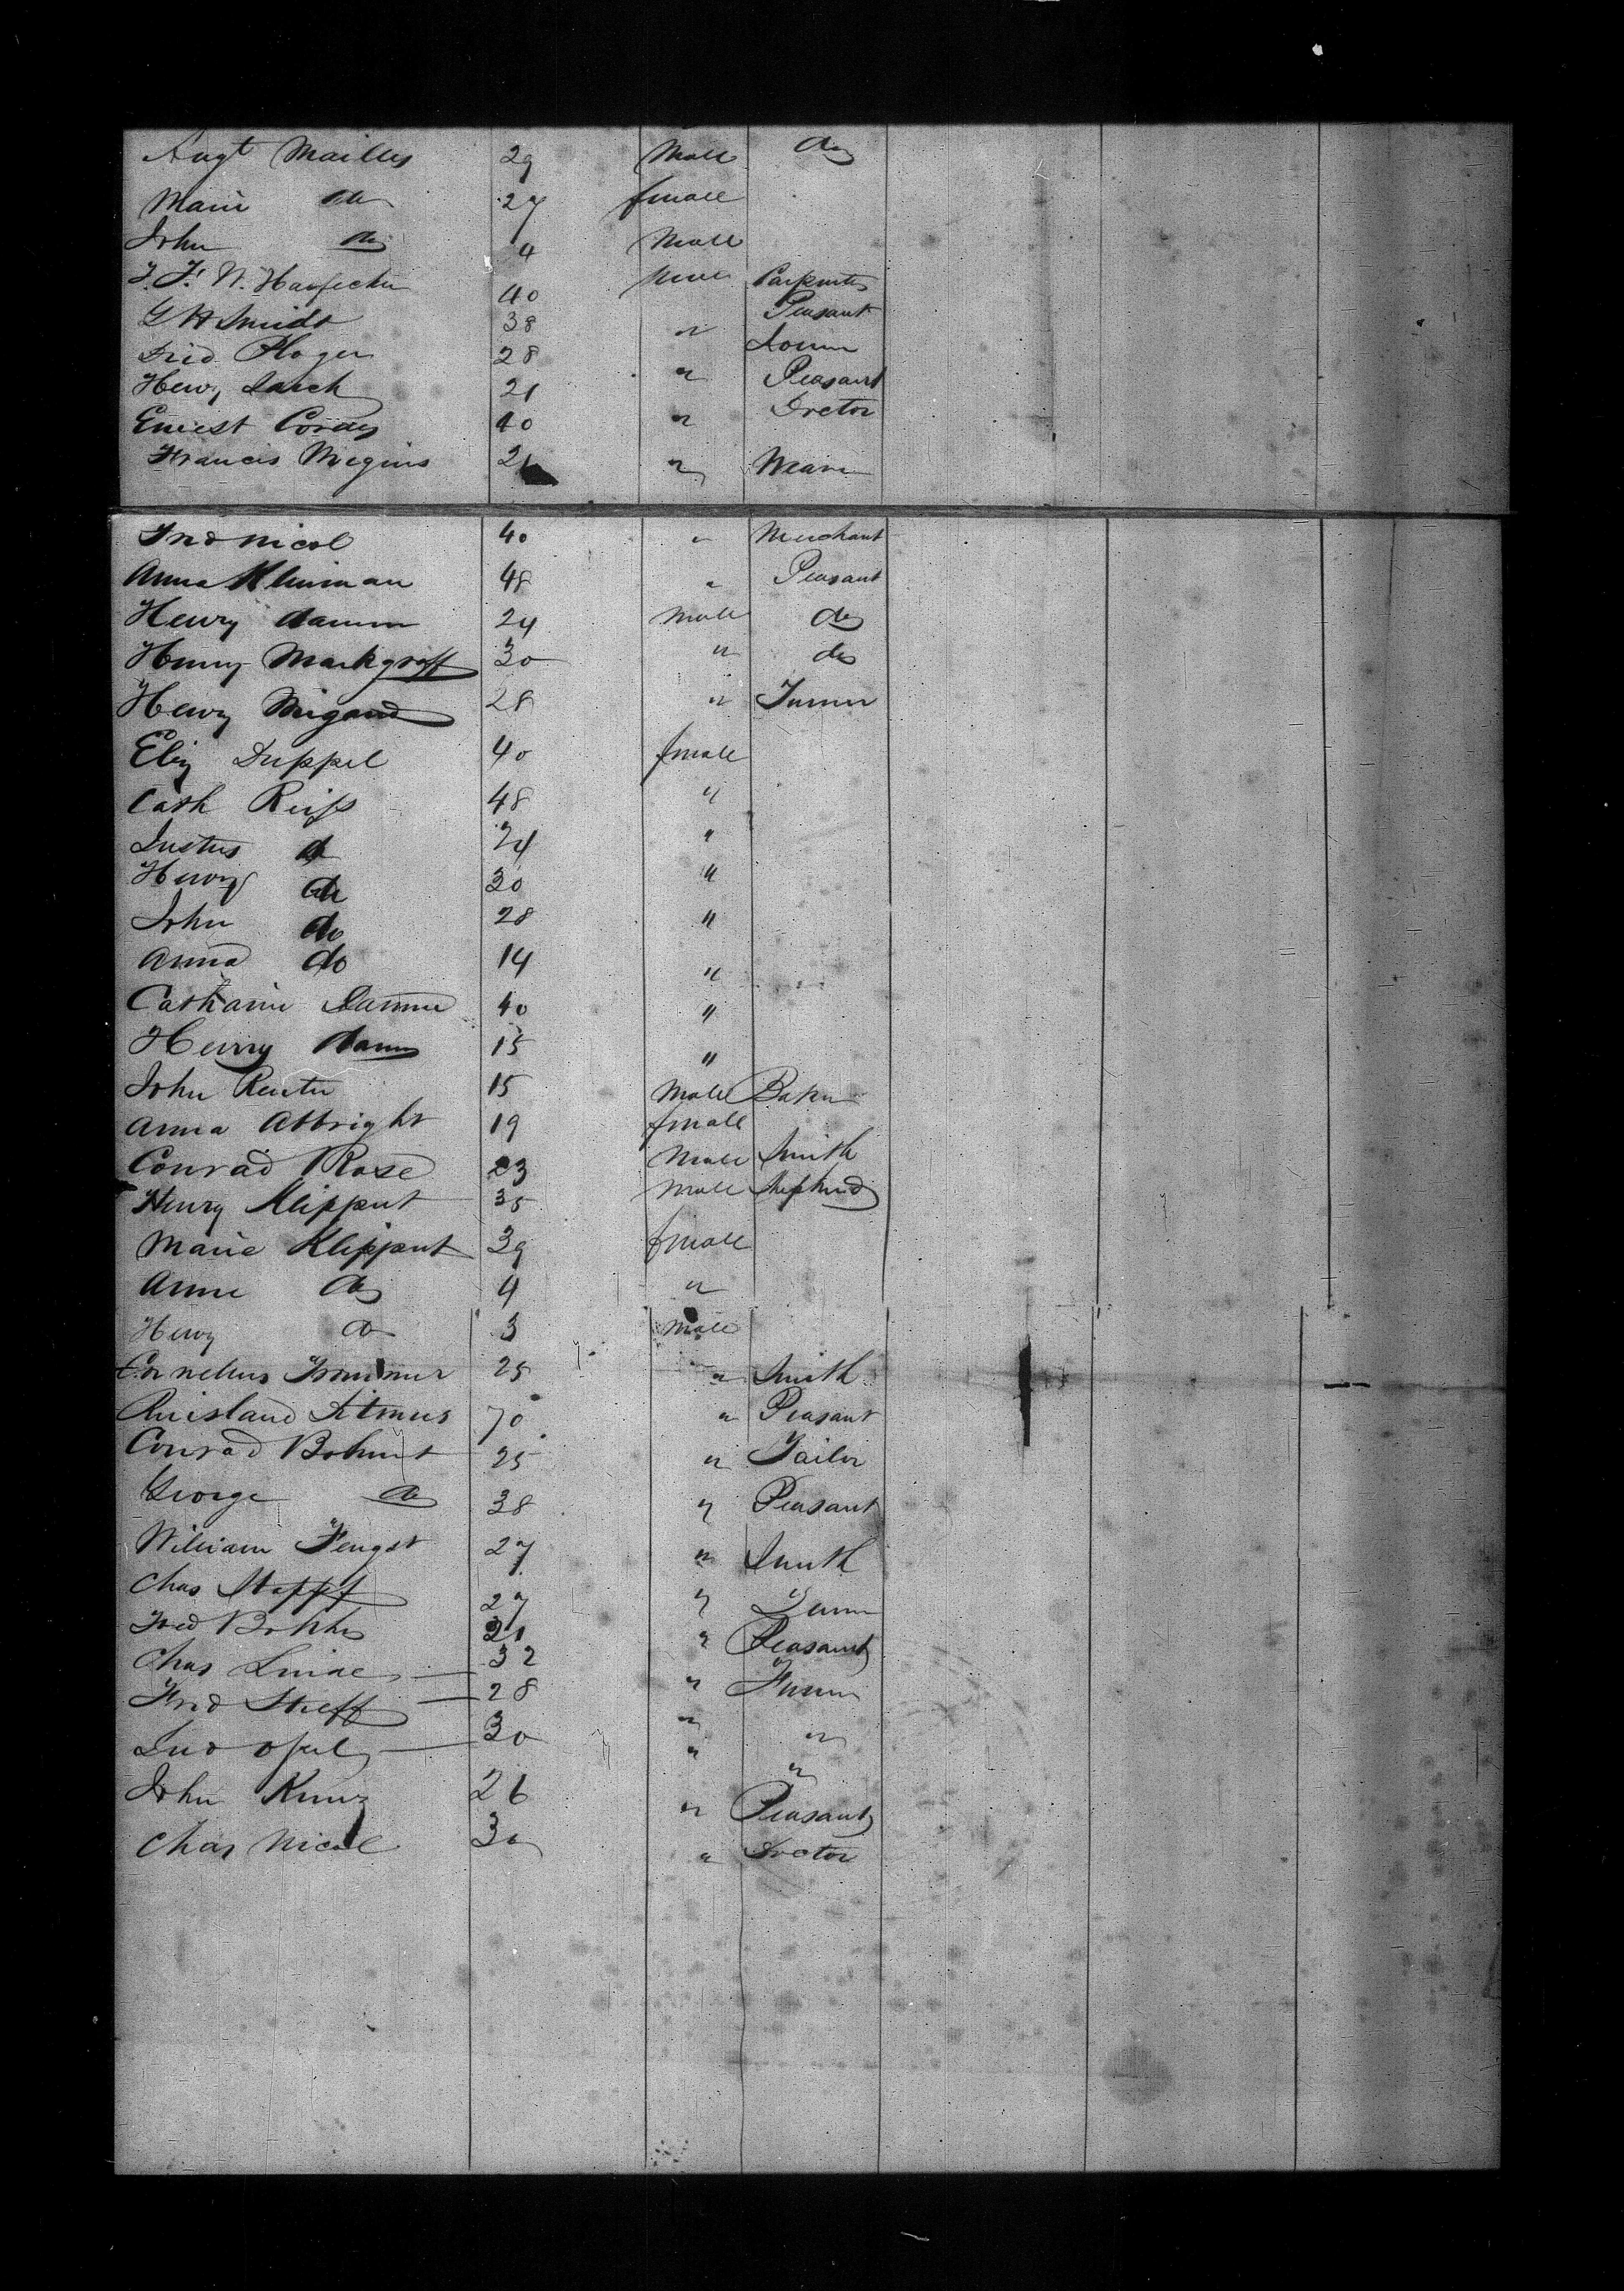 Augt Mailles 29 Male do
Marie do 27 female
John do 4 Male
40 Male Carpenter
G H Smidt 38 " Peasant
Fried Ploger 28
Henry Larch 21 " Peasant
Ernest Cordes 40 " Doctor
Francis 21 " Weaver
Fred Nicol 40 " Merchant
Anna Kleinman 48 " Peasant
Henry Damm 24 Male do
Henry Markgraff 30 " do
Henry Wigand 28 " Turner
Eliz Duppel 40 female
Cath Reiss 48 "
Justus do 24 "
Henry do 30 "
John do 28 "
Anna do 14 "
Catharine Damme 40 "
Henry Damm 15 "
John Reuter 15 Male Baker
Anna Albright 19 female
Conrad Rose 23 Male Smith
Henry Klippert 35 Male Shepherd
Marie Klippert 39 female
Anne do 4 "
Henry do 3 Male
Cornelius 25 " Smith
70 " Peasant
Conrad Bohnert 25 " Tailor
George do 38 " Peasant
William Hengst 27 " Smith
Chas Stapff 27 "
Fred 21 " Peasant
Chas 32 "
Fried Steff 28 "
Opel 30 " "
John Kunz 26 " Peasant
Chas Nicol 30 " Doctor